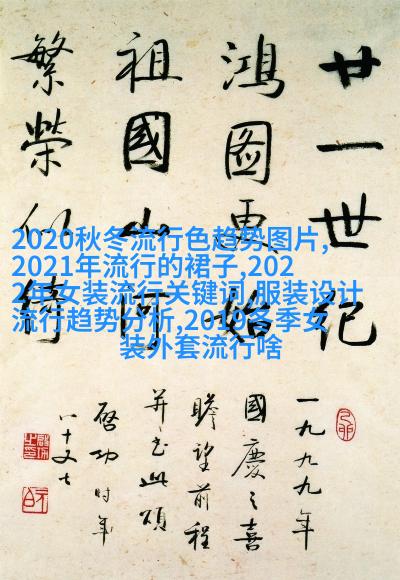 廿一世纪
鴻圖更始
祖國山河
繁榮似綺
一九九九年
國慶之喜
瞻望前程
并书此頌
啓功时年
八十又七
2020秋冬流行色趋势图片,
2021年流行的裙子,202
2年女装流行关键词,服装设计
流行趋势分析,2019冬季女
装外套流行啥